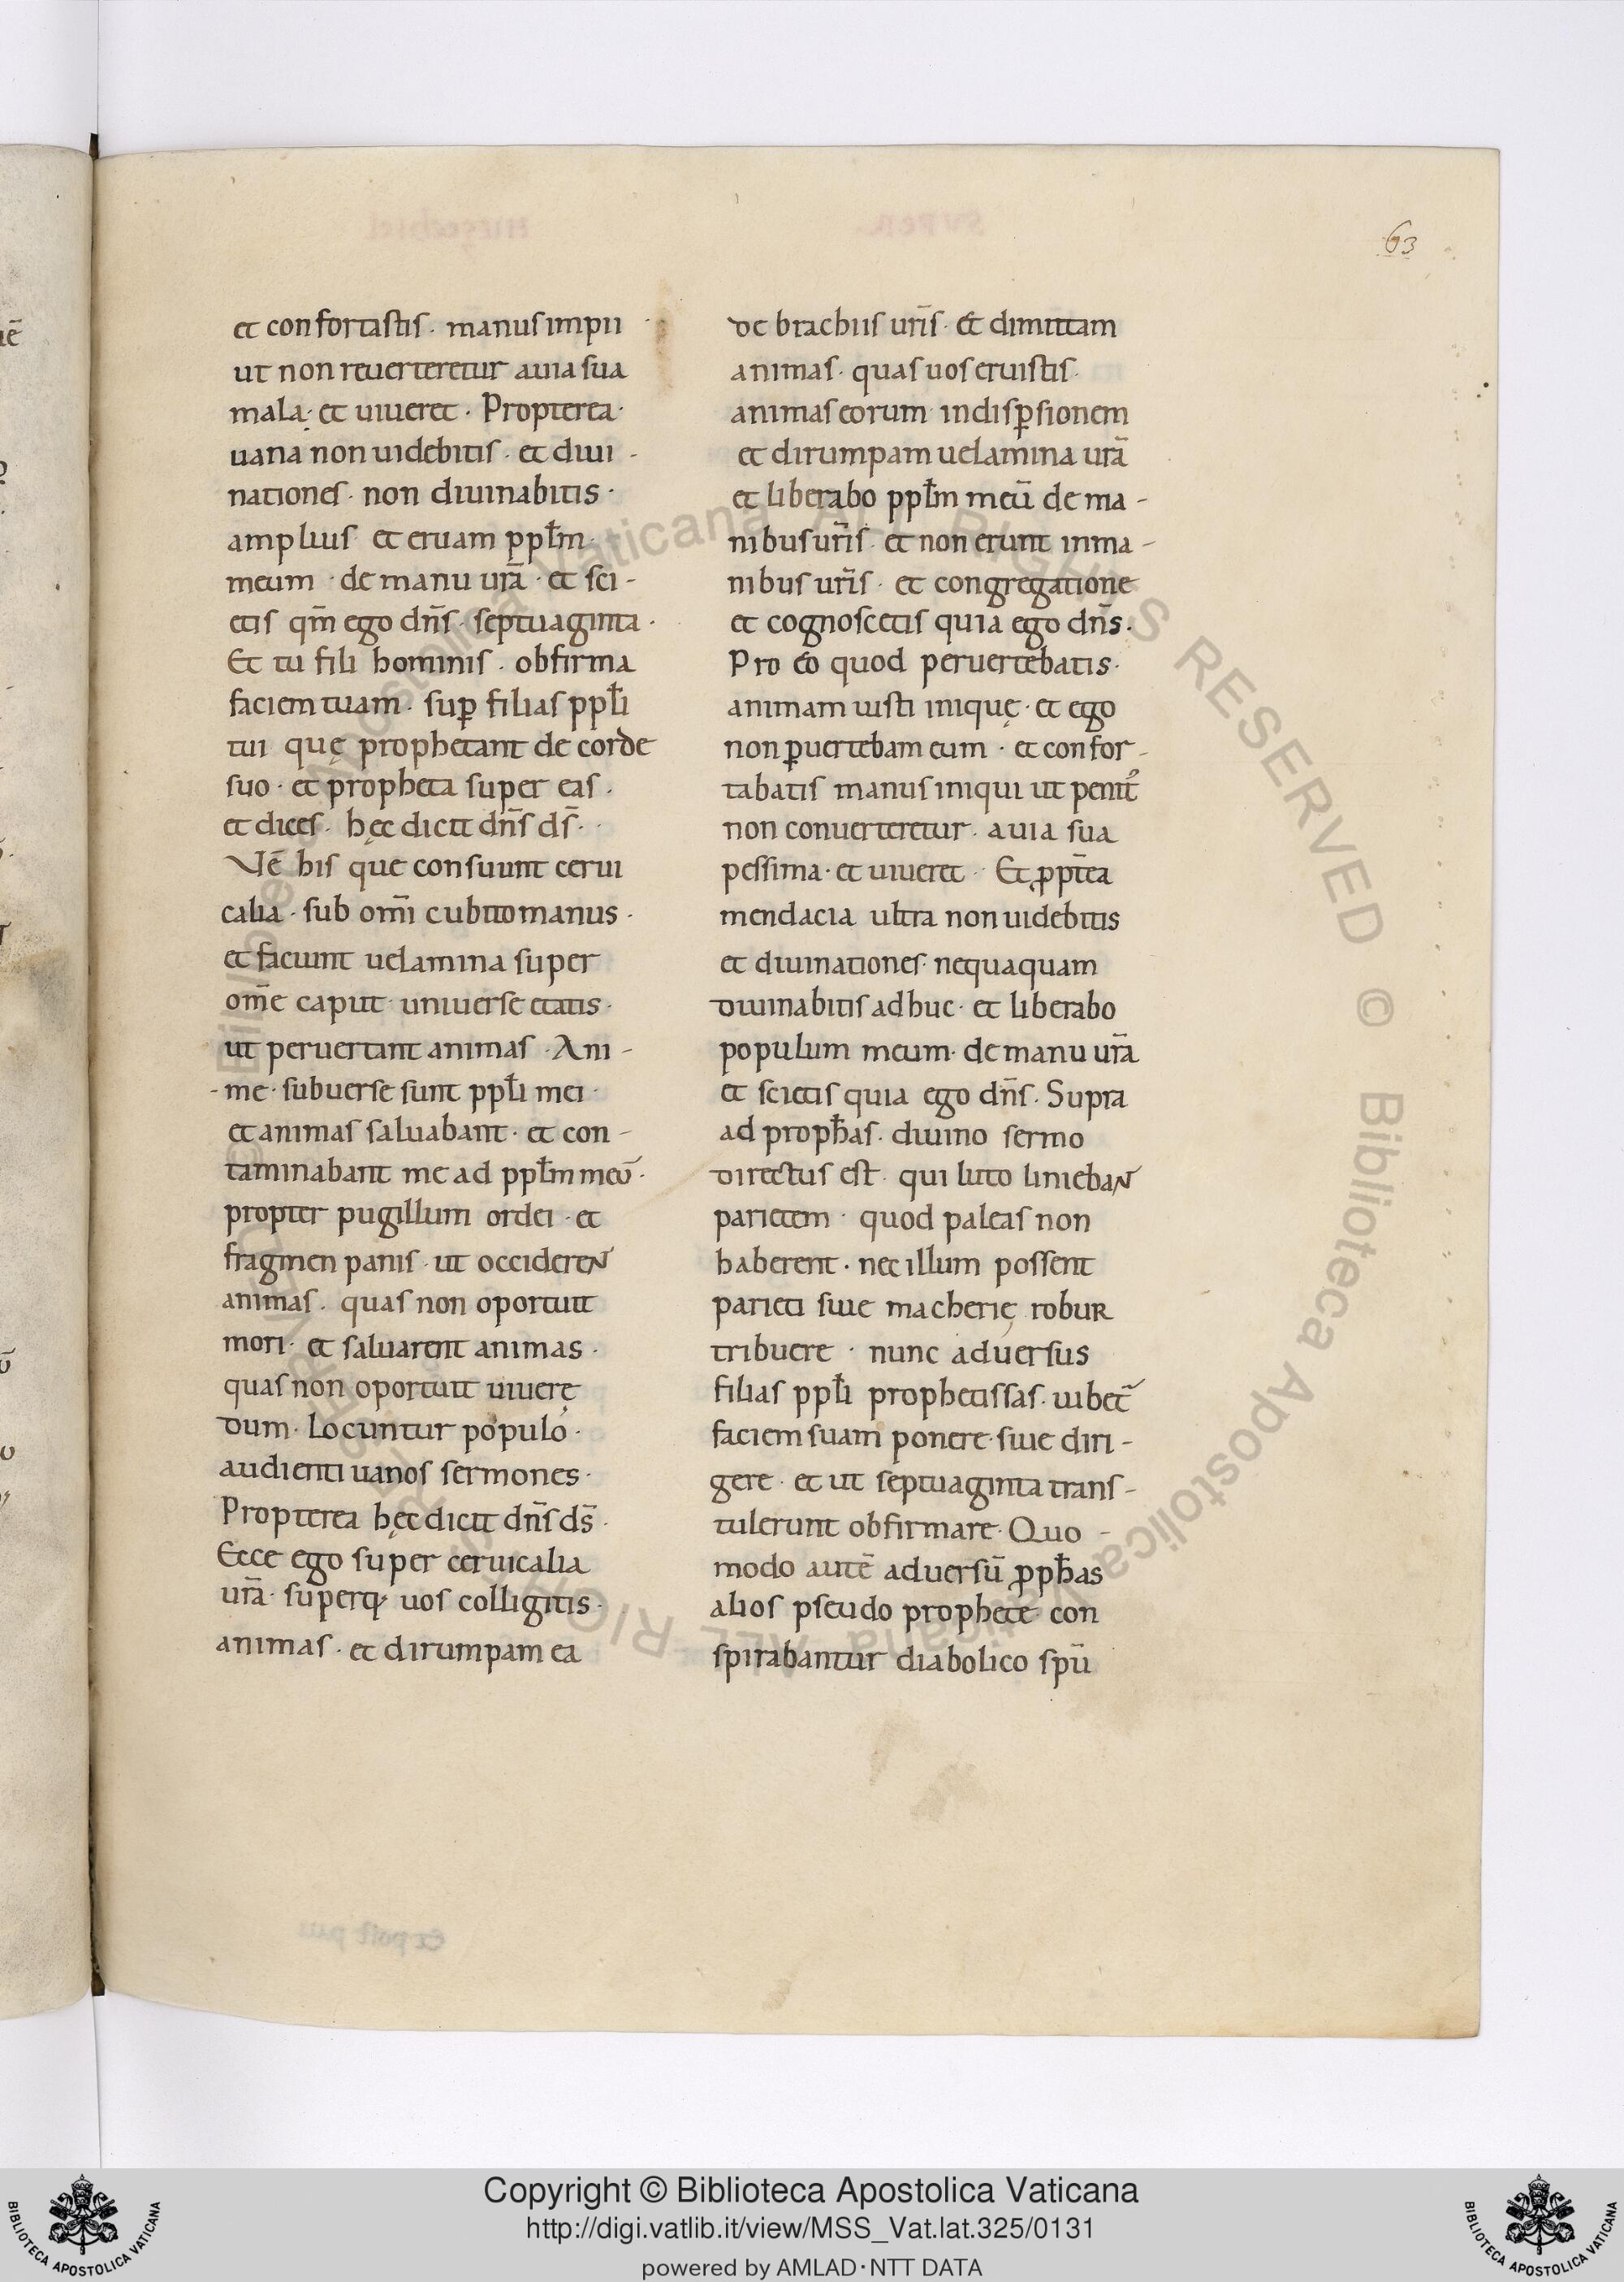 63
et confortastis · manus impii
ut non reuerteretur auia sua
mala · et uiueret · Propterea ·
uana non uidebitis · et diui -
nationes · non diuinabitis ·
amplius et eruam ppl̄m ·
meum · de manu ur̄a · et sci -
etis qm̄ ego dn̄s · septuaginta ·
Et tu fili hominis · obfirma
faciem tuam · suꝑ filias ppl̄i
tui quę prophetant de corde
suo · et propheta super eas ·
et dices · hęc dicit dn̄s ds̄ ·
Vę̄ his que consuunt cerui
calia · sub om̄i cubito manus ·
et faciunt uelamina super
om̄e caput uniuerse etatis ·
ut peruertant animas · Ani -
- me · subuerse sunt ppl̄i mei ·
et animas saluabant · et con -
taminabant me ad ppl̄m meū ·
propter pugillum ordei · et
fragmen panis · ut occiderent
animas · quas non oportuit
mori · et saluarent animas ·
quas non oportuit uiuerę
dum · Locuntur populo ·
audienti uanos sermones ·
Propterea hęc dicit dn̄s ds̄ ·
Ecce ego super ceruicalia
ur̄a · superq· uos colligitis ·
animas · et dirumpam ea
de brachiis ur̄is · Et dimittam
animas · quas uos eruistis ·
animas eorum indisꝑsionem
et dirumpam uelamina ur̄a
et liberabo ppl̄m meū de ma -
nibus ur̄is · et non erunt inma -
nibus ur̄is · et congregatione
et cognoscetis quia ego dn̄s ·
Pro eo quod peruertebatis ·
animam iusti inique̜ · et ego
non ꝑuertebam eum · et confor -
tabatis manus iniqui ut penit᷒
non conuerteretur · auia sua
pessima · et uiueret · Et ꝓpt̄ea
mendacia ultra non uidebitis
et diuinationes · nequaquam
diuinabitis adhuc · et liberabo
populum meum · de manu ur̄a
et scietis quia ego dn̄s · Supra
ad proph̄as · diuino sermo
directus est · qui luto liniebant
parietem · quod paleas non
haberent · nec illum possent
parieti siue macherię robur
tribuere · nunc aduersus
filias ppl̄i prophetissas · iubet᷑
faciem suam ponere · siue diri -
gere · et ut septuaginta trans -
tulerunt obfirmare · Quo -
modo autē aduersū ꝓph̄as
alios pseudo prophete · con
spirabantur diabolico spū
Copyright © Biblioteca Apostolica Vaticana
http://digi.vatlib.it/view/MSS_Vat.lat.325/0131
powered by AMLAD·NTT DATA